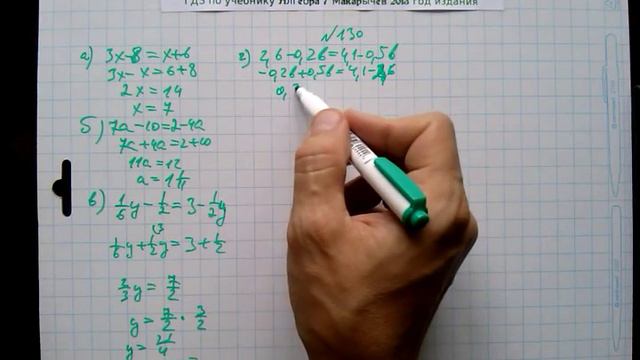 ГДЗ по учебнику Алгебра 7 Макарычев 2013 год издания
№130
а) 3x-8=x+6
3x-x=6+8
2x=14
x=7
б) 7a-10=2-4a
7a+4a=2+10
11a=12
a=1 1/11
в) 1/6y-1/2=3-1/2y
1/6y+1/2y=3+1/2
2/3y=7/2
y=7/2·3/2
y=21/4
г) 2,6-0,2b=4,1-0,5b
-0,2b+0,5b=4,1-2,6
0,